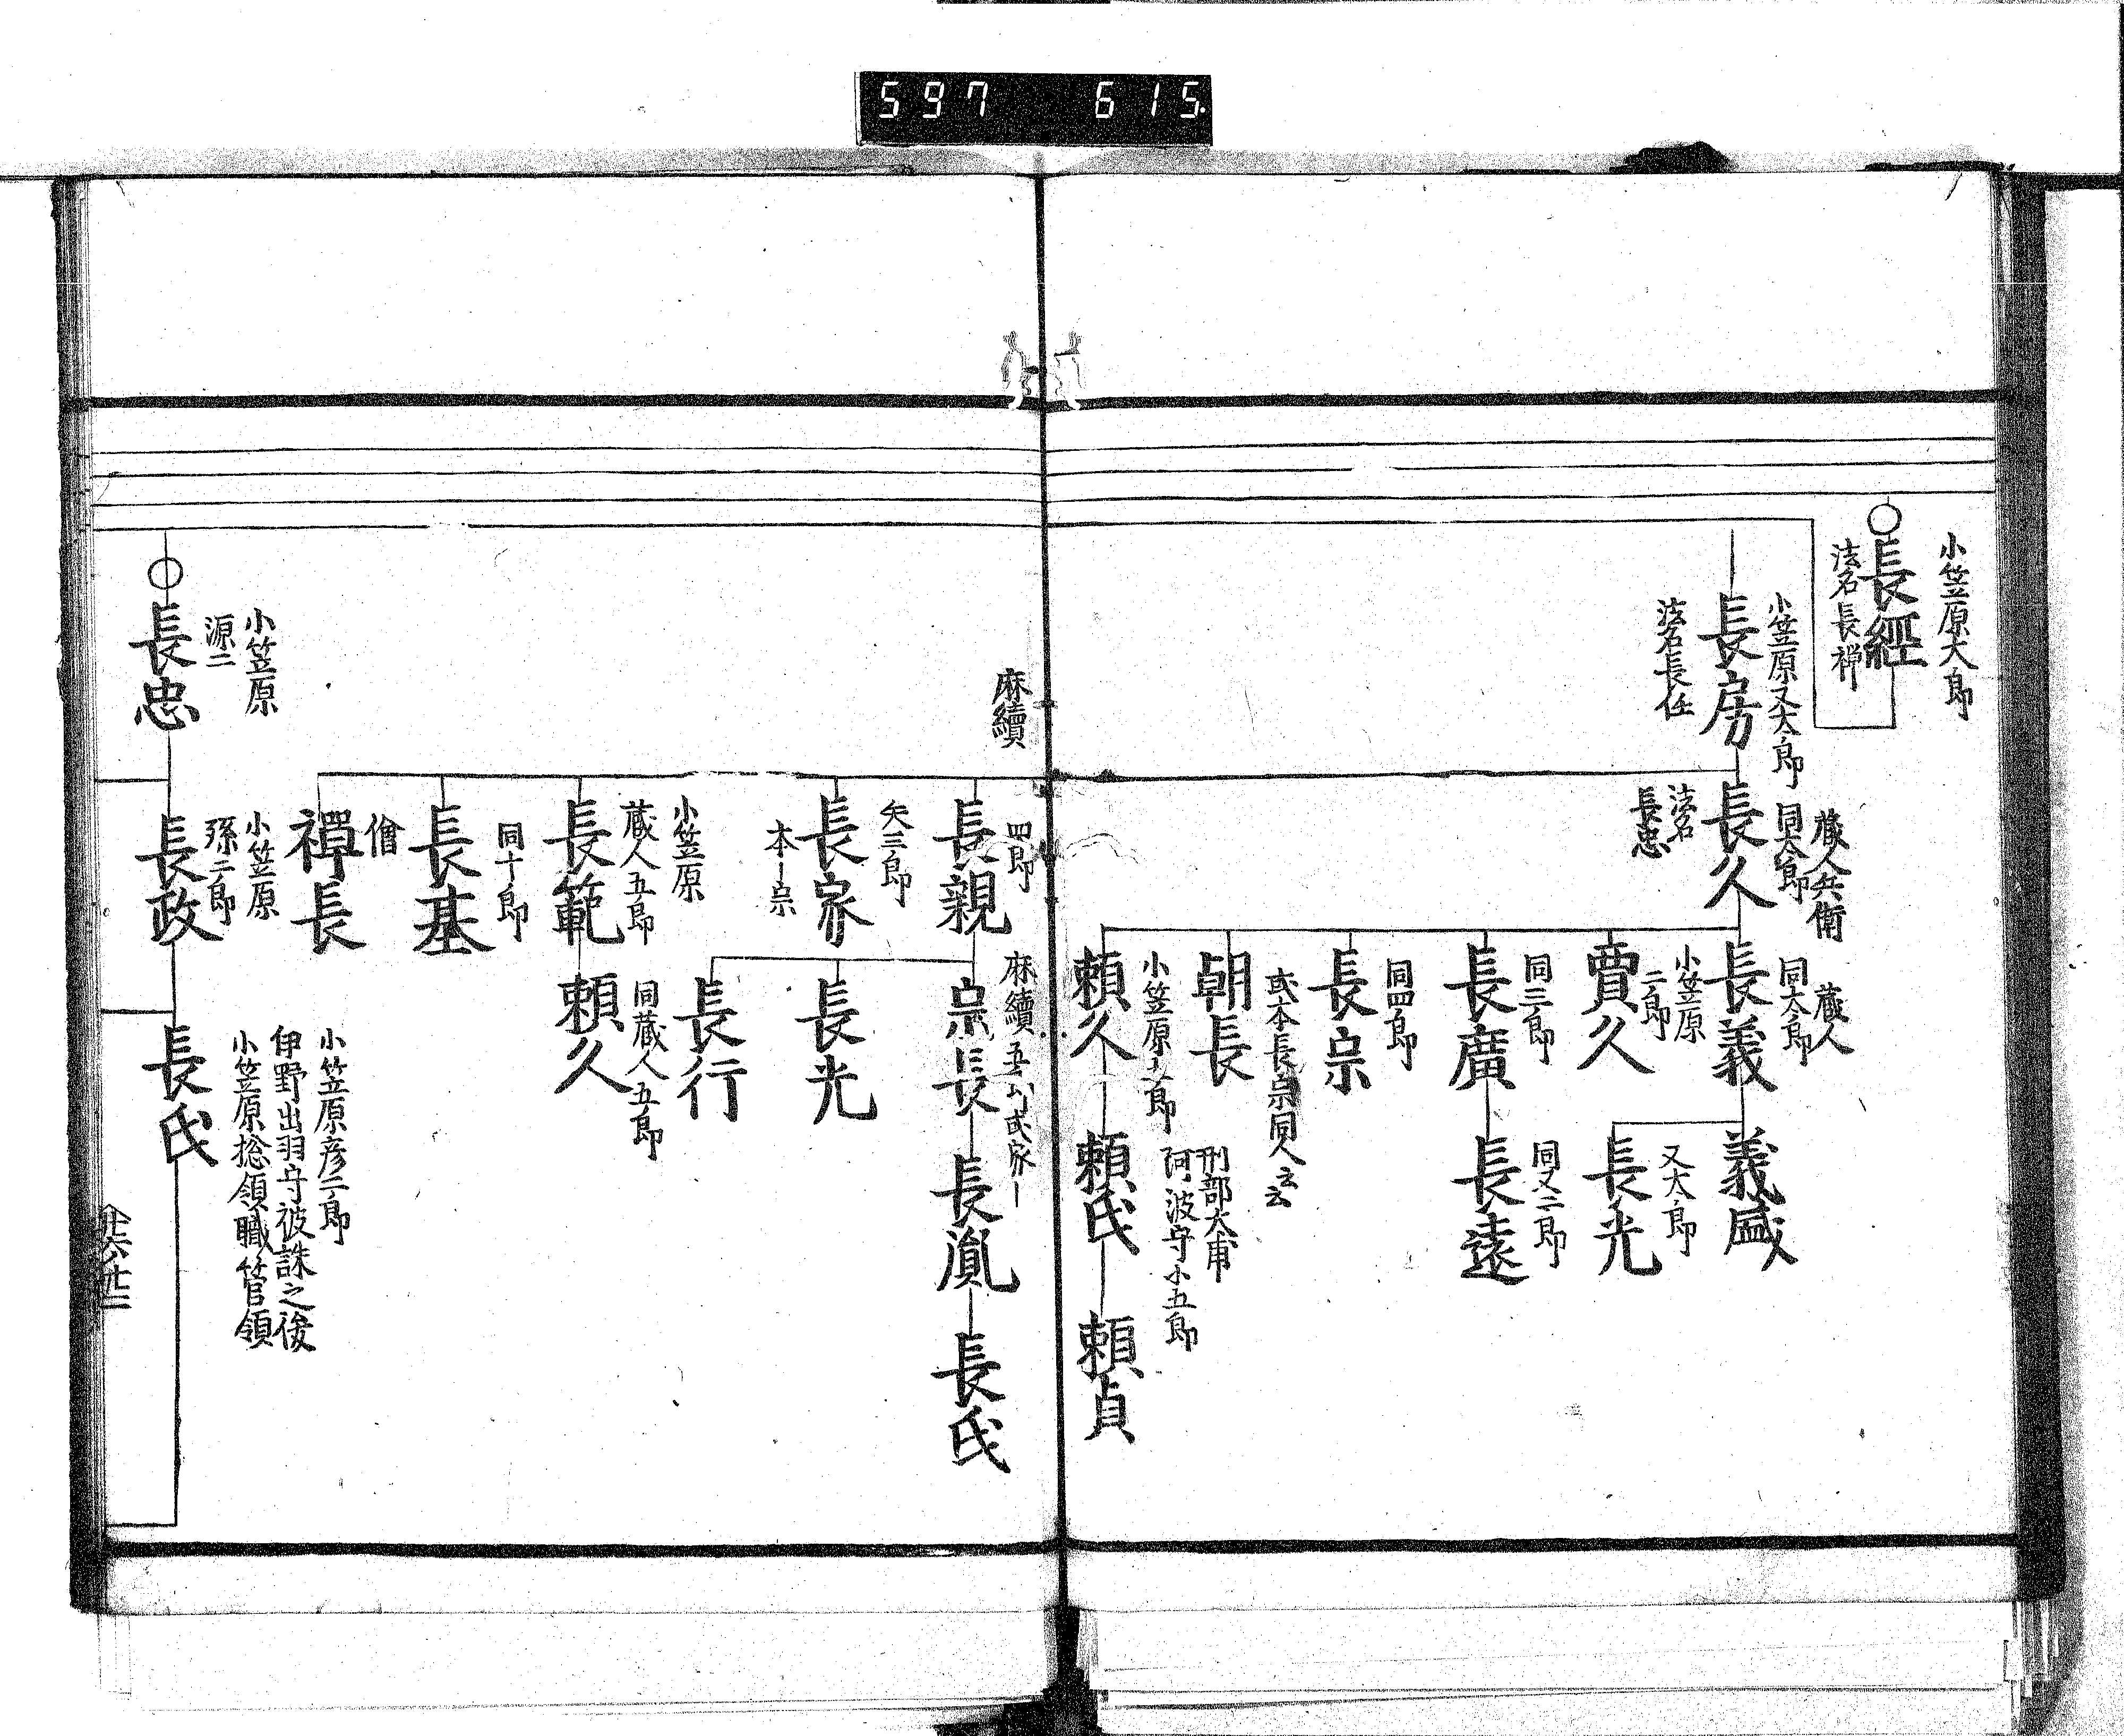 597 615
小笠原太郎
長經
法名長禅
小笠原又太郎
長房
法名長任
蔵人兵衛
同太郎
長久
法名
長忠
蔵人
同太郎
長義
義盛
又太郎
長光
小笠原
二郎
賈久
同三郎
長廣
同又二郎
長遠
同四郎
長宗
或本長宗同人云云
朝長
小笠原
頼久
刑部大甫
阿波守小五郎
頼氏
頼貞
麻續
四郎
長親
麻續
宗長
長胤
長氏
長光
長行
矢三郎
長家
本ー宗
小笠原
蔵人五郎
長範
同蔵人五郎
頼久
同十郎
長基
僧
禪長
小笠原
源二
長忠
小笠原
孫二郎
長政
小笠原彦二郎
伊野出羽守被誅之後
小笠原捴領職管領
長氏